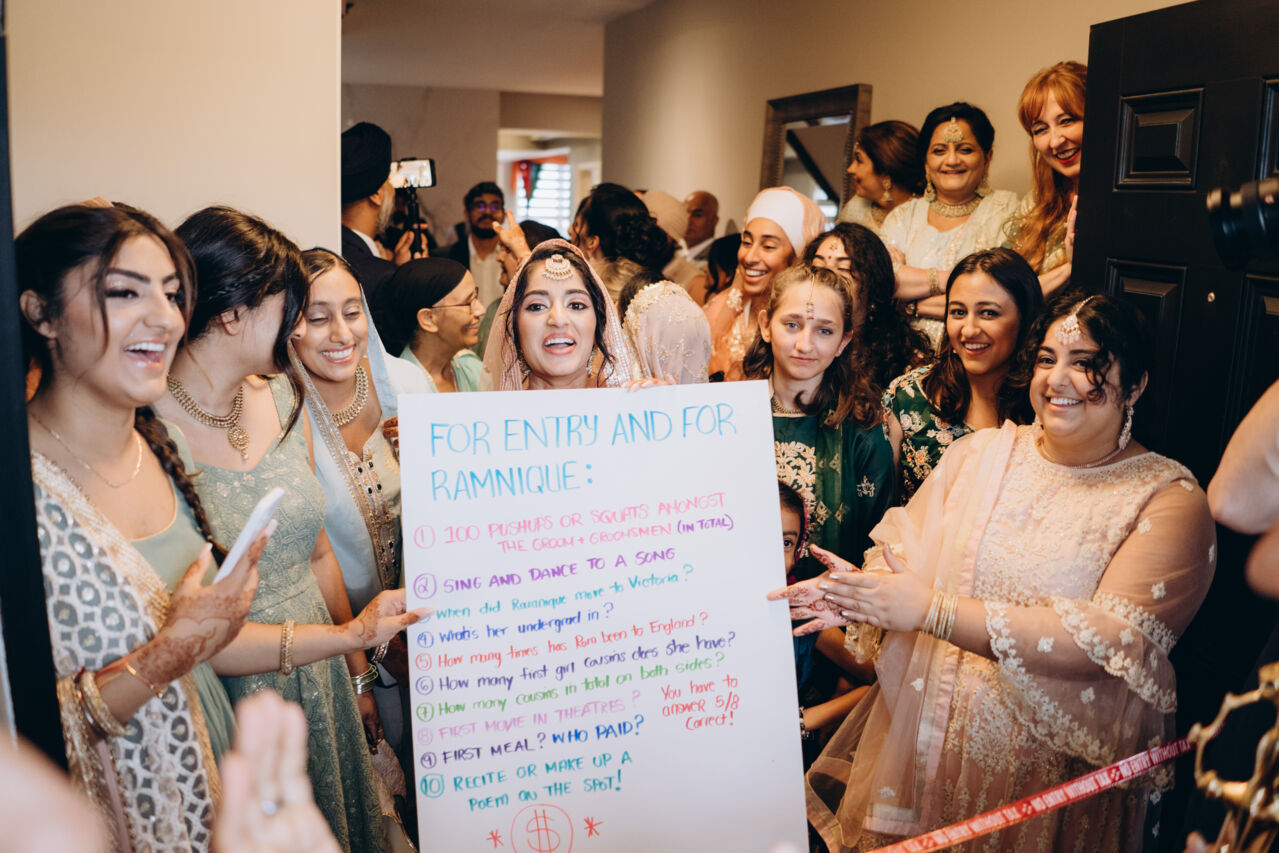 FOR ENTRY AND FOR
RAMNIQUE:
① 100 PUSHUPS OR SQUATS AMONGST
THE GROOM + GROOMSMEN (IN TOTAL)
② SING AND DANCE TO A SONG
When did Ramnique move to Victoria?
④ What's her undergrad in?
⑤ How many times has Ram been to England?
⑥ How many first girl cousins does she have?
⑦ How many cousins in total on both sides?
⑧ FIRST MOVIE IN THEATRES?
⑨ FIRST MEAL? WHO PAID?
You have to
answer 5/8
correct!
⑩ RECITE OR MAKE UP A
POEM ON THE SPOT!
* $ *
NO ENTRY WITHOUT TAX NO ENTRY WITHOUT TAX